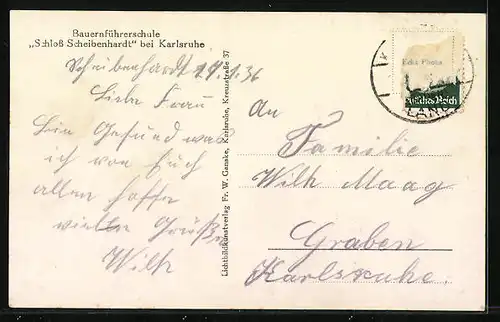 Bauernführerschule
„Schloß Scheibenhardt" bei Karlsruhe
Scheibenhardt 24.1.36
Liebe Frau
Bin Gesund was
ich von Euch
allen hoffe
viele Grüße
Wilh
Lichtbildkunstverlag Fr. W. Ganske, Karlsruhe, Kreuzstraße 37
Echt Photo
Deutsches Reich
An
Familie
Wilh Maag
Graben
Karlsruhe.